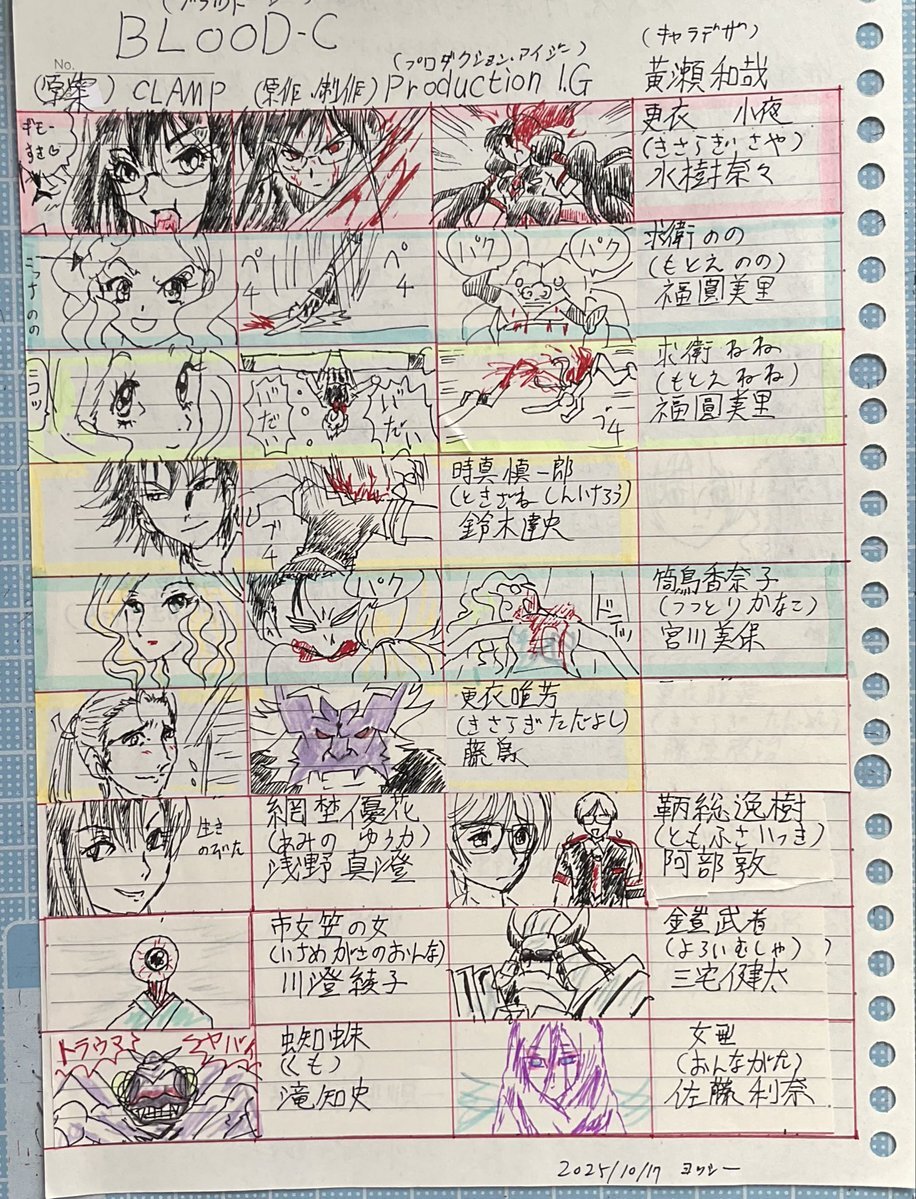 (ブラッド シー)
BLOOD-C
No.
(原案) CLAMP (原作、制作) Production I.G
(プロダクション.アイジー)
(キャラデザ)
黄瀬和哉
ギモー
すき♡
更衣 小夜
(きさらぎ さや)
水樹奈々
こっちのの
ペチ
ペチ
パク
パク
求衛のの
(もとえ のの)
福圓美里
ニコッ
いだい
いだい
ブチ
求衛ねね
(もとえねね)
福圓美里
ブチ
時真慎一郎
(ときざね しんいちろう)
鈴木達央
パク
筒鳥香奈子
(つつとりかなこ)
宮川美保
更衣唯芳
(きさらぎただよし)
藤真
生き
のびた
網埜優花
(あみの ゆうか)
浅野真澄
鞆総逸樹
(ともふさいつき)
阿部敦
市女笠の女
(いちめがさのおんな)
川澄綾子
鎧武者
(よろいむしゃ)
三宅健太
トラウマ
ヤバイ
蜘蛛
(くも)
滝知史
女型
(おんながた)
佐藤利奈
2025/10/17 ヨッシー